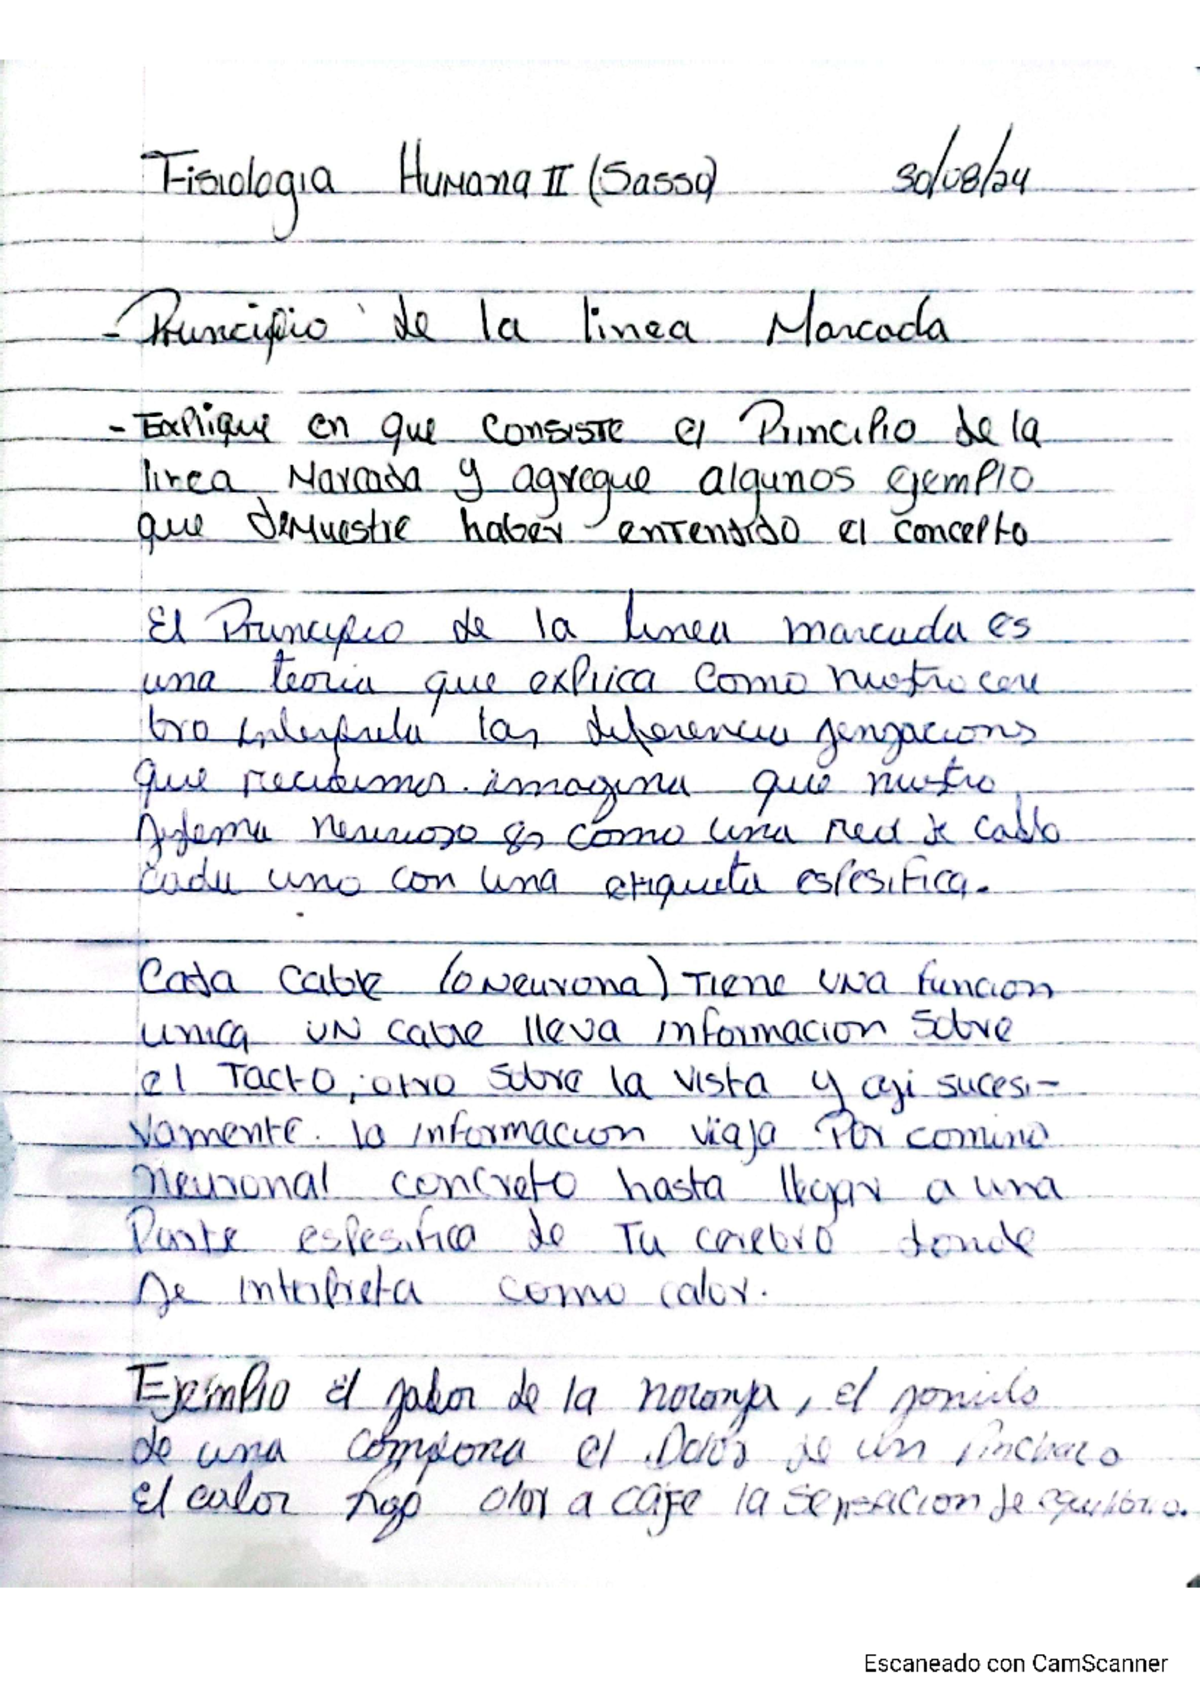 Fisiologia Humana II (Sasso) 30/08/24
- Principio de la linea Marcada
- Explique en que consiste el Principio de la
linea Marcada y agregue algunos ejemplo
que demuestre haber entendido el concepto
El Principio de la linea marcada es
una teoria que explica como nuestro cere
bro interpreta las diferencia sensacions
que recibimos. imagina que nuestro
sistema nervioso es como una red de cable
cada uno con una etiqueta espesifica.
Cada cable (o Neurona) Tiene una funcion
unica un cable lleva informacion sobre
el Tacto, otro sobre la vista y asi sucesi-
vamente. la informacion viaja Por camino
neuronal concreto hasta llegar a una
Parte espesifica de Tu cerebro donde
se interpreta como calor.
Ejemplo el sabor de la naranja, el sonido
de una campana el Dolor de un Pinchazo
El calor fego olor a cafe la sensacion de equilibrio.
Escaneado con CamScanner